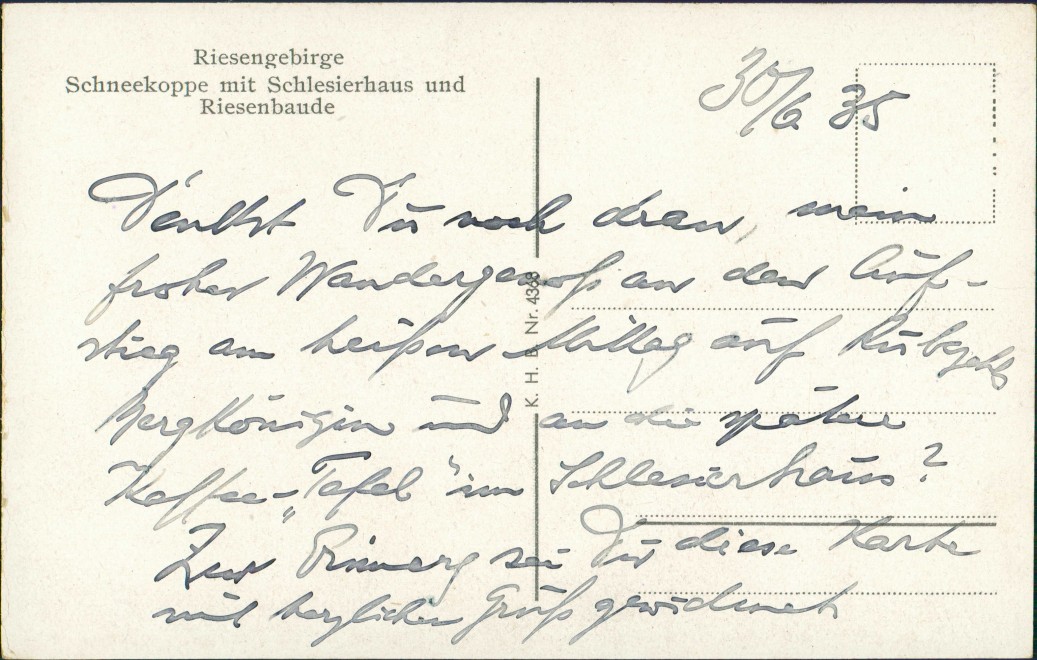 Riesengebirge
Schneekoppe mit Schlesierhaus und
Riesenbaude
30/6 35
K. H. B. Nr. 4368
Denkst Du noch dran, mein
froher Wandergenoß an den Auf-
stieg am heißen Mittag auf Rübezahls
Bergkönigin und an die spätere
Kaffee-„Tafel“ im Schlesierhaus?
Zur Erinnerg sei Dir diese Karte
mit herzlichem Gruß gewidmet